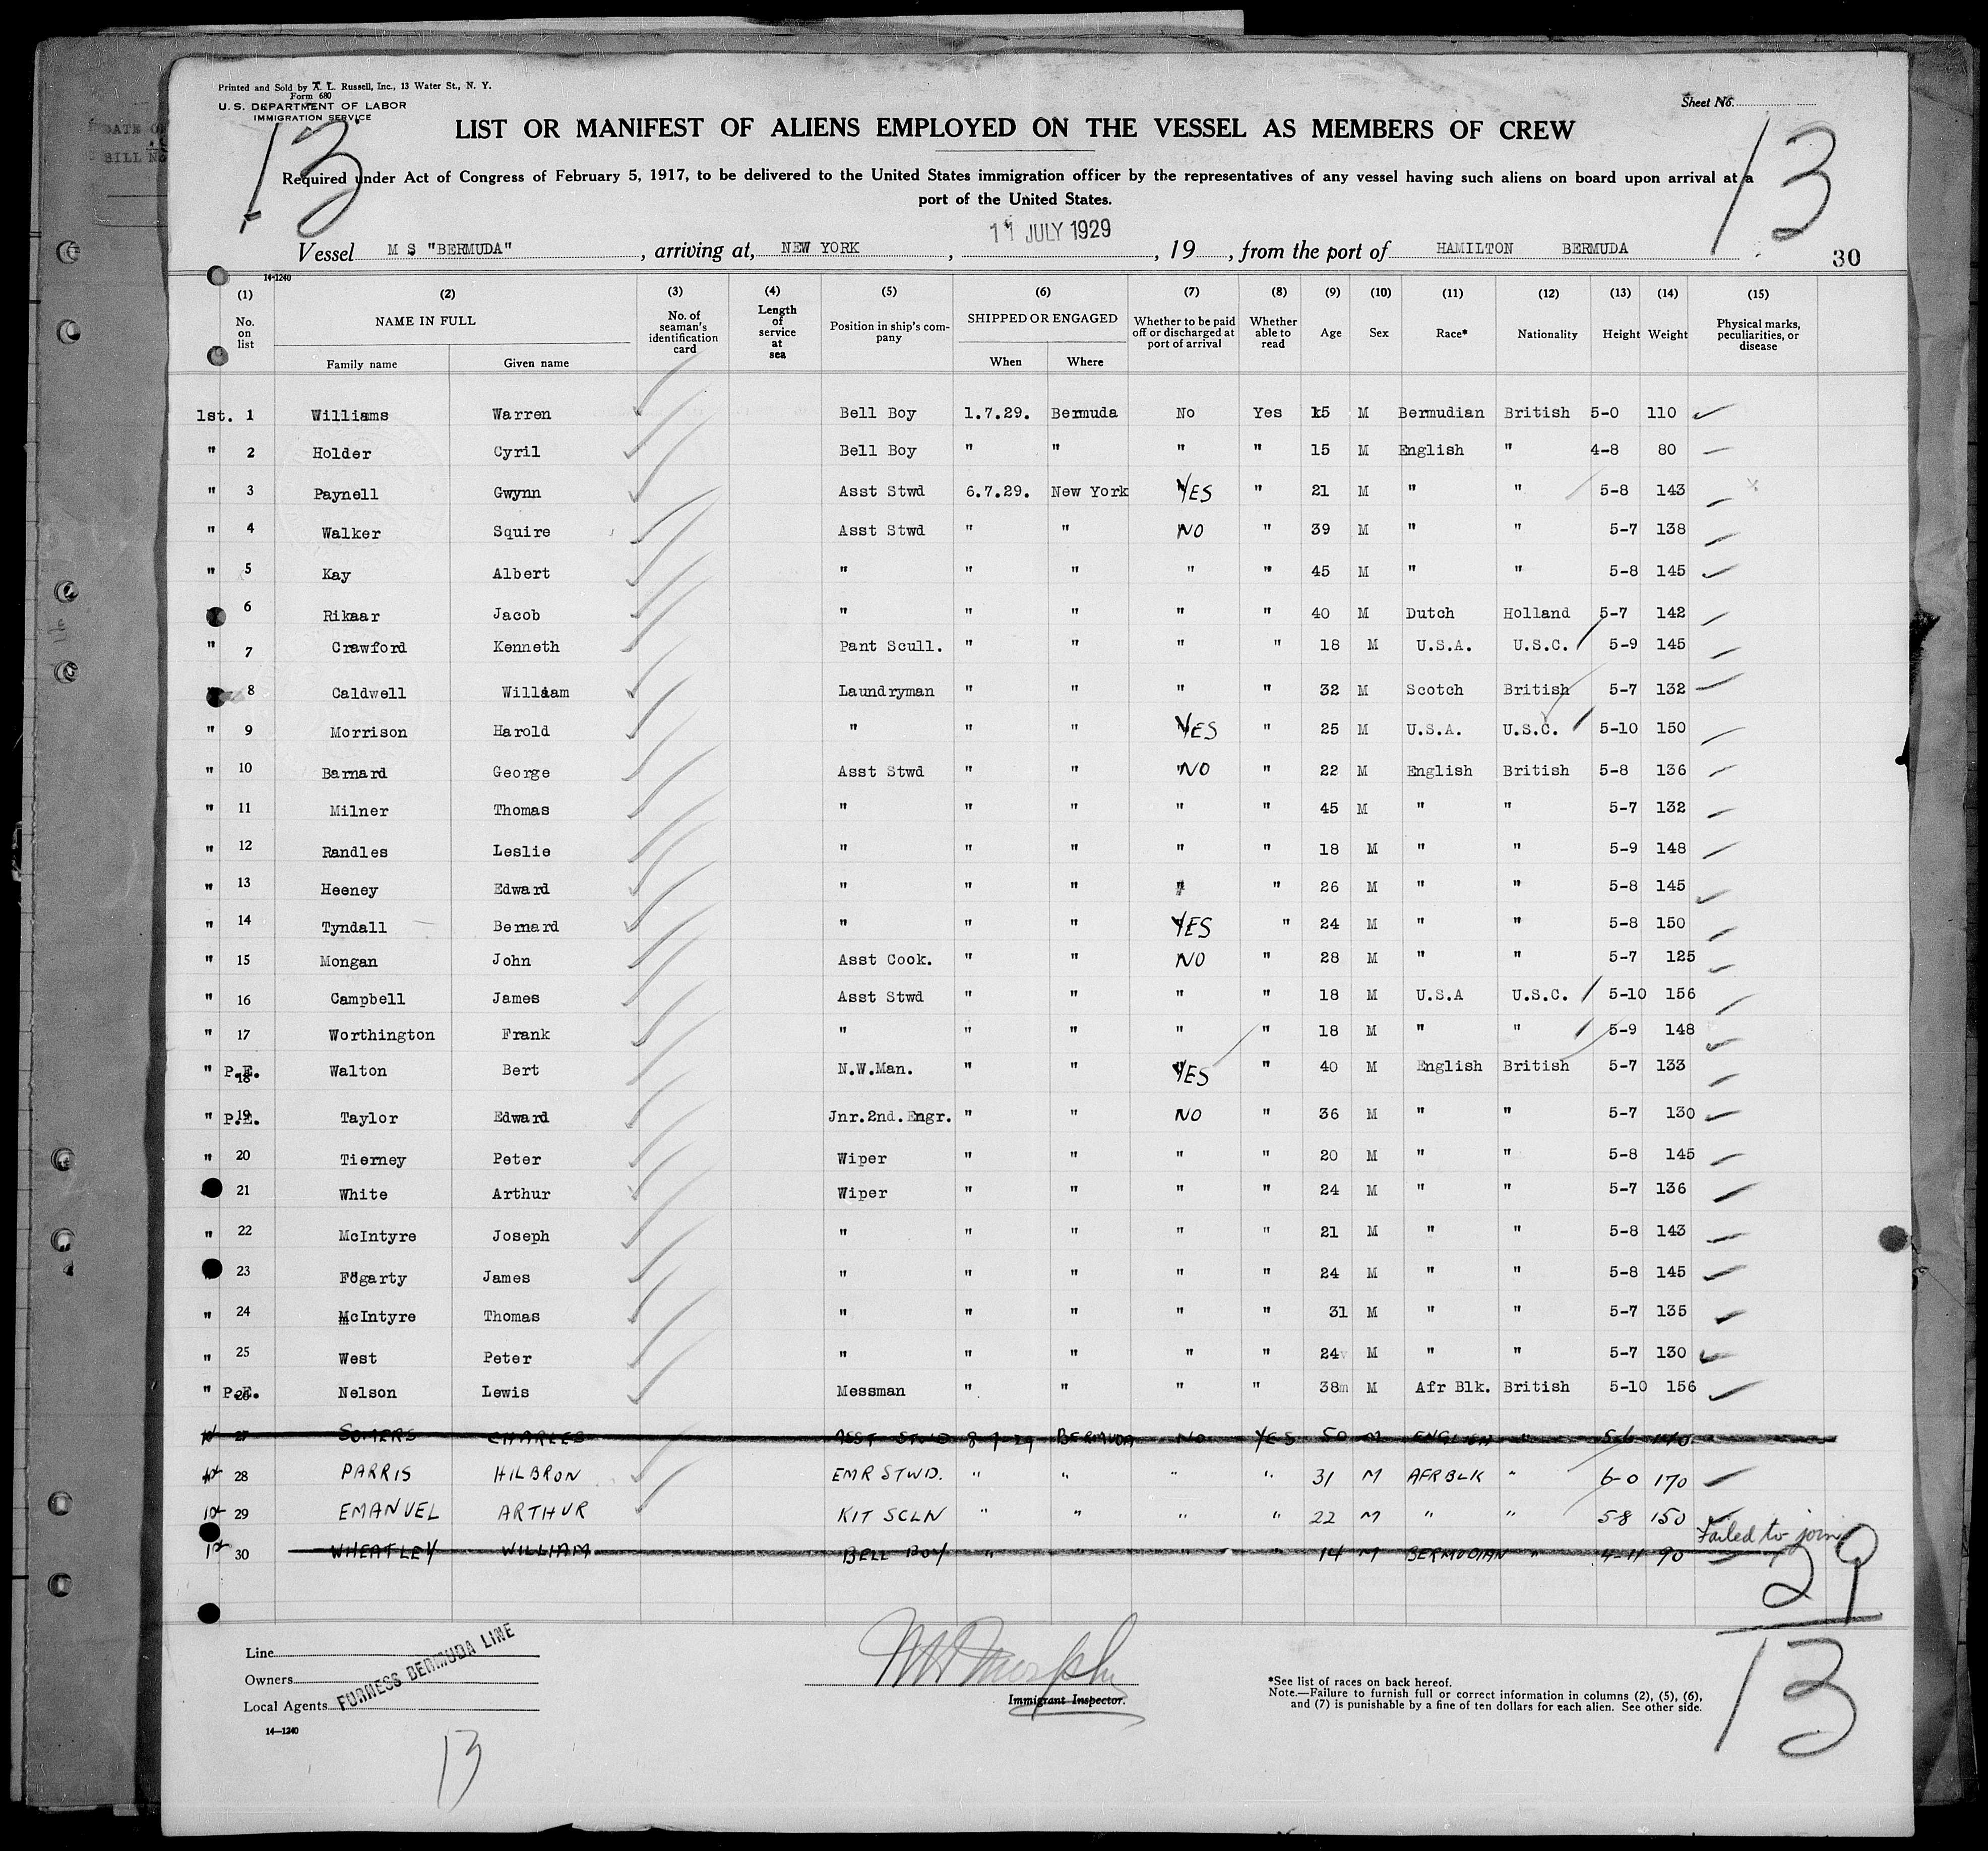 Printed and Sold by A. L. Russell, Inc., 13 Water St., N. Y.
Form 680
U. S. DEPARTMENT OF LABOR
IMMIGRATION SERVICE
Sheet No.
13
13
LIST OR MANIFEST OF ALIENS EMPLOYED ON THE VESSEL AS MEMBERS OF CREW
Required under Act of Congress of February 5, 1917, to be delivered to the United States immigration officer by the representatives of any vessel having such aliens on board upon arrival at a
port of the United States.
Vessel M S "BERMUDA", arriving at, NEW YORK, 11 JULY 1929, 19, from the port of HAMILTON BERMUDA
30
14-1240
(1) (2) (3) (4) (5) (6) (7) (8) (9) (10) (11) (12) (13) (14) (15)
No. on list NAME IN FULL Family name Given name No. of seaman's identification card Length of service at sea Position in ship's company SHIPPED OR ENGAGED When Where Whether to be paid off or discharged at port of arrival Whether able to read Age Sex Race* Nationality Height Weight Physical marks, peculiarities, or disease
1st. 1 Williams Warren Bell Boy 1.7.29. Bermuda No Yes 15 M Bermudian British 5-0 110
" 2 Holder Cyril Bell Boy " " " " 15 M English " 4-8 80
" 3 Paynell Gwynn Asst Stwd 6.7.29. New York YES " 21 M " " 5-8 143
" 4 Walker Squire Asst Stwd " " NO " 39 M " " 5-7 138
" 5 Kay Albert " " " " " 45 M " " 5-8 145
" 6 Rikaar Jacob " " " " " 40 M Dutch Holland 5-7 142
" 7 Crawford Kenneth Pant Scull. " " " " 18 M U.S.A. U.S.C. 5-9 145
" 8 Caldwell William Laundryman " " " " 32 M Scotch British 5-7 132
" 9 Morrison Harold " " " YES " 25 M U.S.A. U.S.C. 5-10 150
" 10 Barnard George Asst Stwd " " NO " 22 M English British 5-8 136
" 11 Milner Thomas " " " " " 45 M " " 5-7 132
" 12 Randles Leslie " " " " " 18 M " " 5-9 148
" 13 Heeney Edward " " " " " 26 M " " 5-8 145
" 14 Tyndall Bernard " " " YES " 24 M " " 5-8 150
" 15 Mongan John Asst Cook. " " NO " 28 M " " 5-7 125
" 16 Campbell James Asst Stwd " " " " 18 M U.S.A U.S.C. 5-10 156
" 17 Worthington Frank " " " " " 18 M " " 5-9 148
" P.E. 18 Walton Bert N.W.Man. " " YES " 40 M English British 5-7 133
" P.E. 19 Taylor Edward Jnr.2nd.Engr. " " NO " 36 M " " 5-7 130
" 20 Tierney Peter Wiper " " " " 20 M " " 5-8 145
" 21 White Arthur Wiper " " " " 24 M " " 5-7 136
" 22 McIntyre Joseph " " " " " 21 M " " 5-8 143
23 Fogarty James " " " " " 24 M " " 5-8 145
" 24 McIntyre Thomas " " " " " 31 M " " 5-7 135
" 25 West Peter " " " " " 24 M " " 5-7 130
" P.E. 26 Nelson Lewis Messman " " " " 38 M Afr Blk. British 5-10 156
27 SOMERS CHARLES ASST STWD 8-7-29 BERMUDA NO YES 50 M ENGLISH " 5-6 140
28 PARRIS HILBRON EMR STWD. " " " " 31 M AFR BLK " 6-0 170
1st 29 EMANUEL ARTHUR KIT SCLN " " " " 22 M " " 5-8 150
1st 30 WHEATLEY WILLIAM BELL BOY " " " " 14 M BERMUDIAN " 4-11 90 Failed to join
29
13
Line
Owners
Local Agents
FURNESS BERMUDA LINE
14-1240
13
Immigrant Inspector.
*See list of races on back hereof.
Note.—Failure to furnish full or correct information in columns (2), (5), (6),
and (7) is punishable by a fine of ten dollars for each alien. See other side.